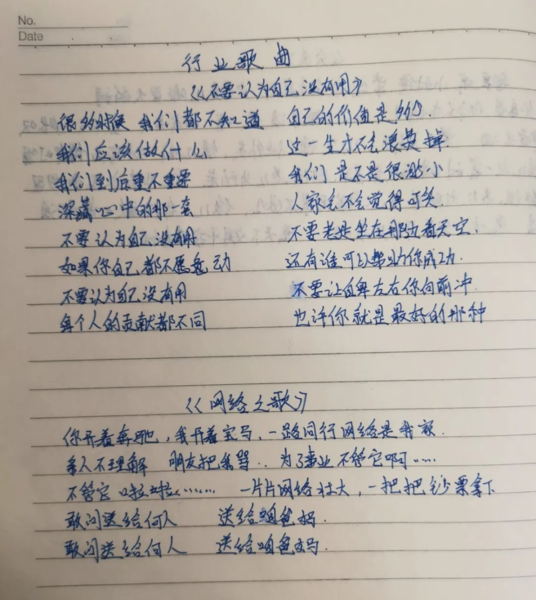 No.
Date
行业歌曲
《不要认为自己没有用》
很多时候 我们都不知道 自己的价值是多少
我们应该做什么 这一生才不会浪费掉
我们到底重不重要 我们是不是很渺小
深藏心中的那一套 人家会不会觉得可笑
不要认为自己没有用 不要老是坐在那边看天空
如果你自己都不愿意动 还有谁可以帮助你成功
不要认为自己没有用 不要让自卑左右你向前冲
每个人的贡献都不同 也许你就是最好的那种
《网络之歌》
你开着奔驰,我开着宝马,一路同行网络是我家
亲人不理解 朋友把我骂..为了事业不管它啊……
不管它 啦啦……… 一片片网络壮大,一把把钞票拿下
敢问送给何人 送给咱爸妈.
敢问送给何人 送给咱爸妈.